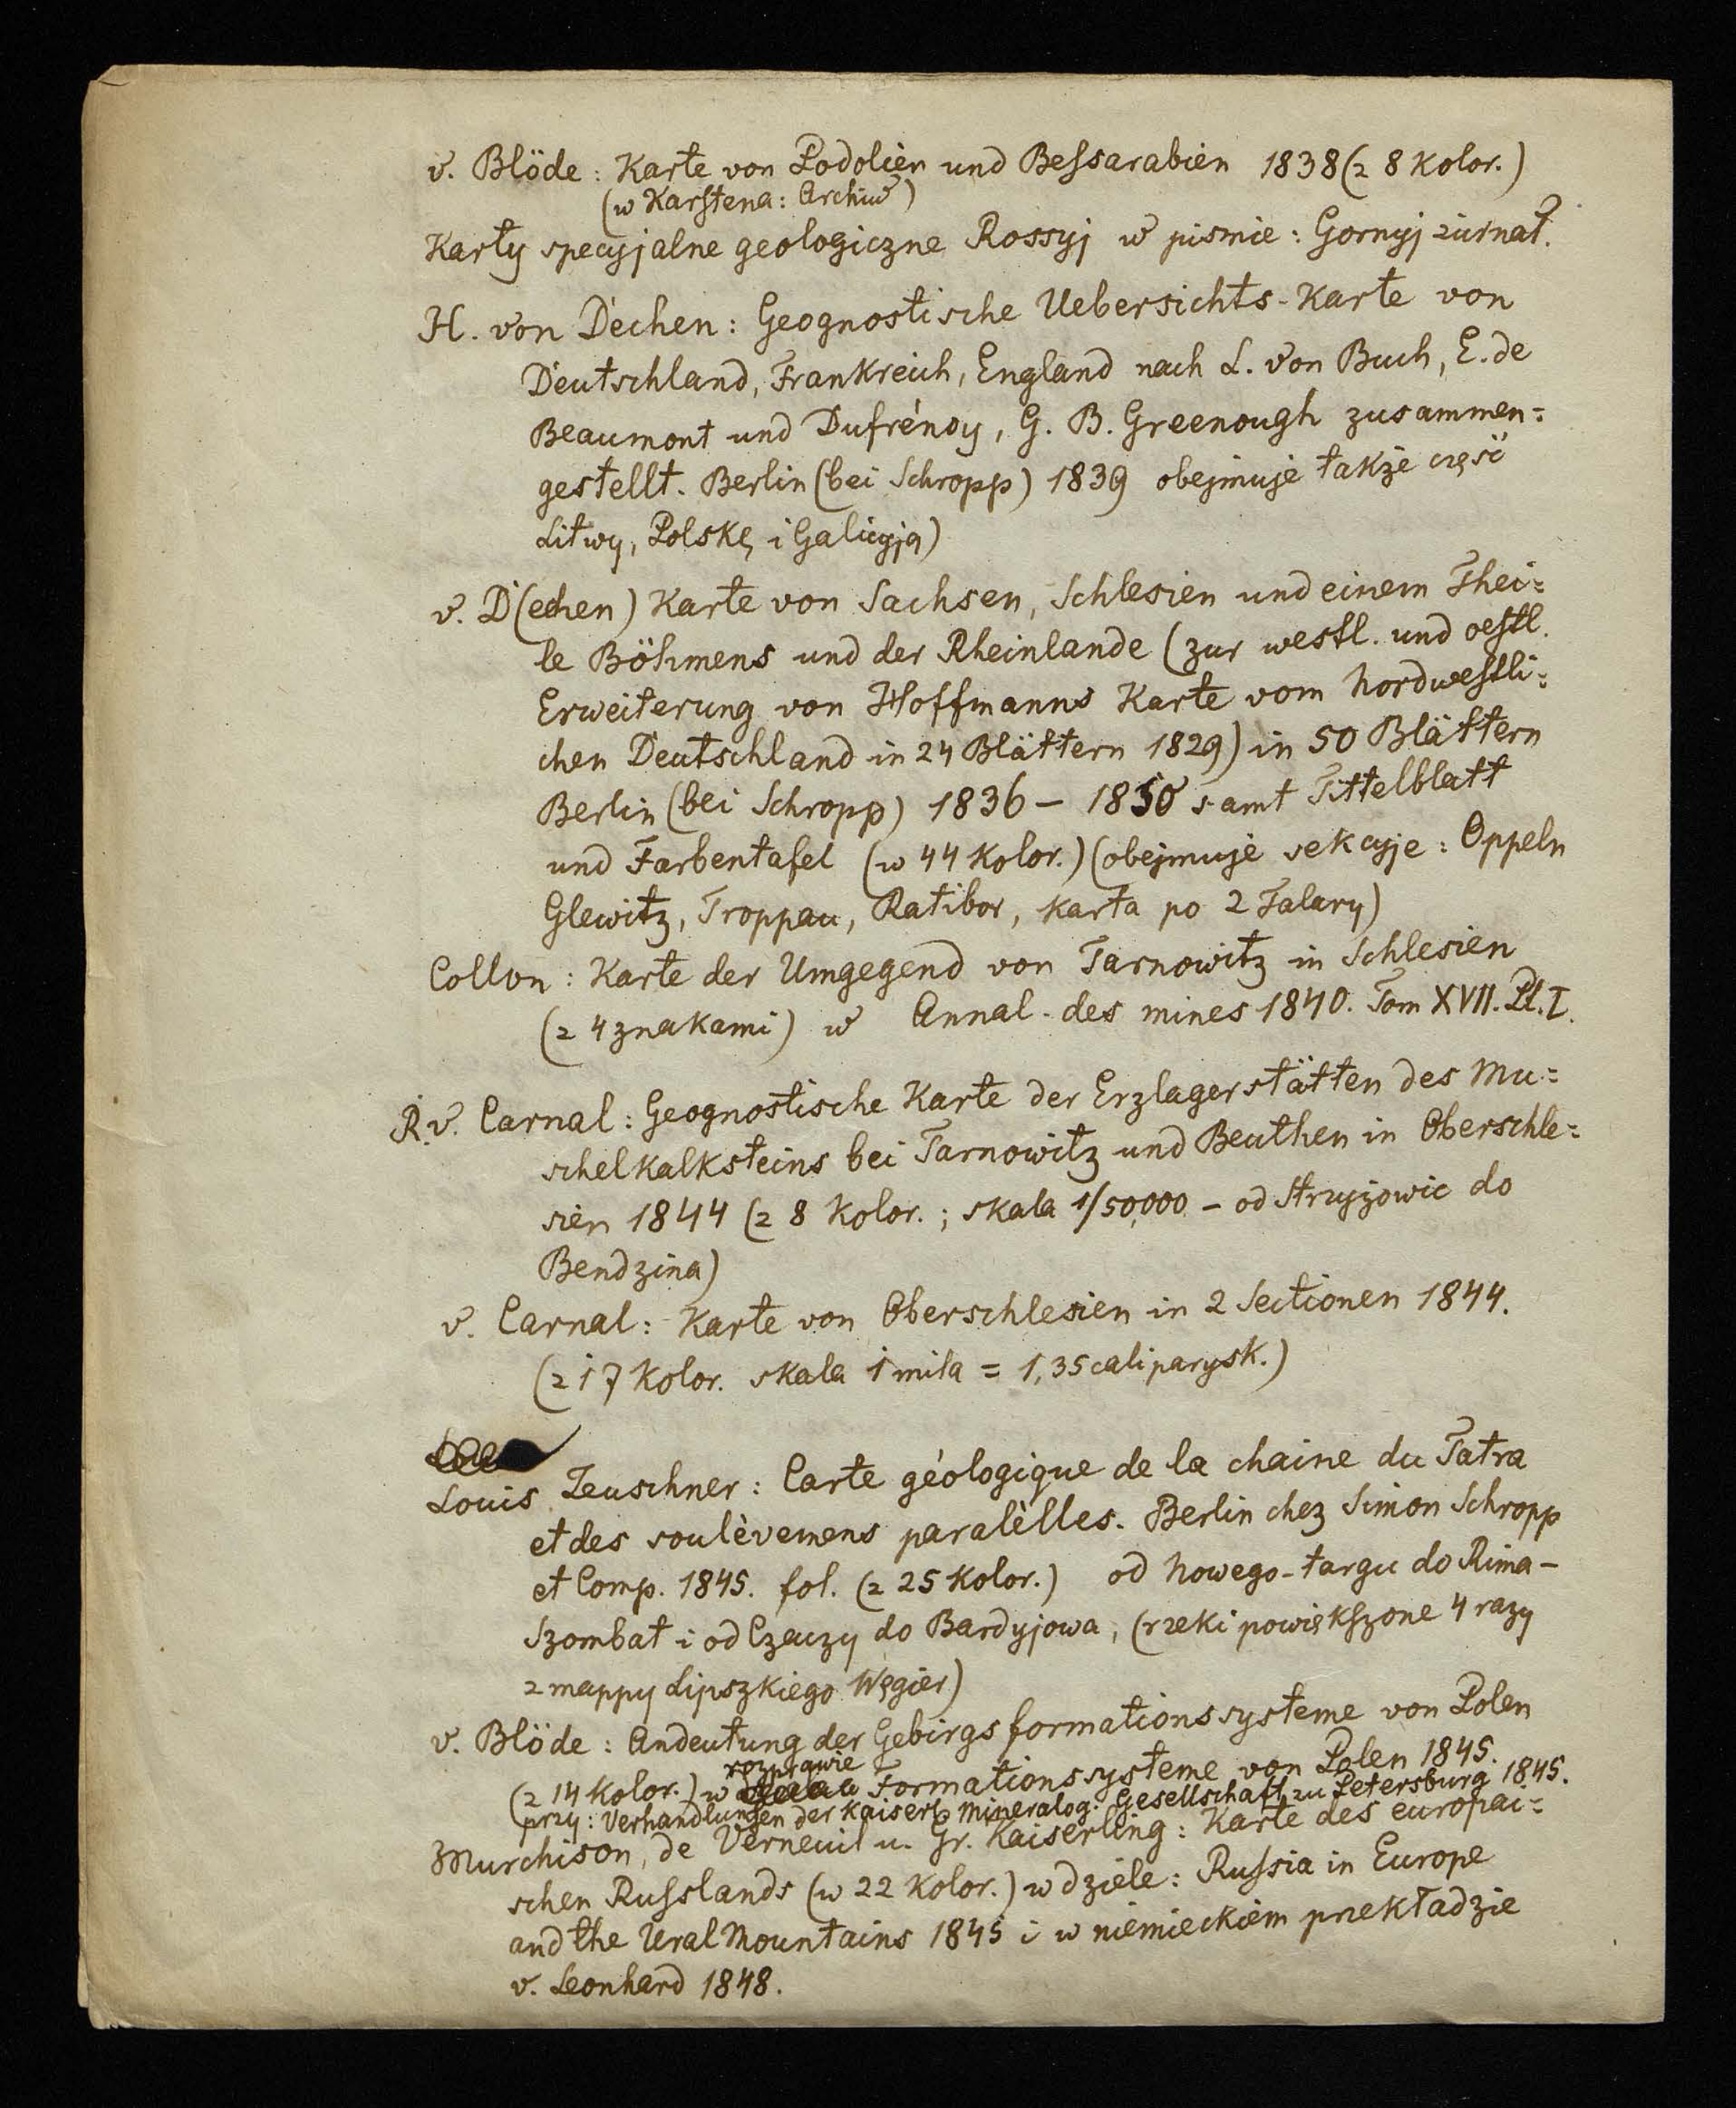 v. Blöde: Karte von Podolien und Beſsarabien 1838 (z 8 kolor.)
(w Karſtena: Archiw)
Karty specyjalne geologiczne Rossyj w pismie: Gornyj żurnał.
H. von Dechen: Geognostische Uebersichts-Karte von
Deutschland, Frankreich, England nach L. von Buch, E. de
Beaumont und Dufrénoy, G. B. Greenough zusammen=
gestellt. Berlin (bei Schropp) 1839 obejmuje także część
Litwy, Polskę i Galicyją)
v. D(echen) Karte von Sachsen, Schlesien und einem Thei=
le Böhmens und der Rheinlande (zur westl. und oeſtl.
Erweiterung von Hoffmanns Karte vom nordweſtli=
chen Deutschland in 24 Blättern 1829) in 50 Blättern
Berlin (bei Schropp) 1836 – 1850 samt Tittelblatt
und Farbentafel (w 44 kolor.) (obejmuje sekcyje: Oppeln
Glewitz, Troppau, Ratibor, karta po 2 Talary)
Collon: Karte der Umgegend von Tarnowitz in Schlesien
(z 4 znakami) w Annal. des mines 1840. Tom XVII. Pl. I.
R. v. Carnal: Geognostische Karte der Erzlagerstätten des Mu=
schelkalksteins bei Tarnowitz und Beuthen in Oberschle=
sien 1844 (z 8 kolor.; skala 1/50,000 – od Stryżowic do
Bendzina)
v. Carnal: Karte von Oberschlesien in 2 Sectionen 1844.
(z 17 kolor. skala 1 mila = 1,35 cali parysk.)
Louis Zeuschner: Carte géologique de la chaine du Tatra
et des soulèvemens paralèlles. Berlin chez Simon Schropp
et Comp. 1845. fol. (z 25 kolor.) od Nowego-targu do Rima-
Szombat i od Czaczy do Bardyjowa, (rzeki powiękſzone 4 razy
z mappy Lipszkiego Węgier)
v. Blöde: Andeutung der Gebirgsformationssysteme von Polen
rozprawie
(z 14 kolor.) w Formationssysteme von Polen 1845.
przy: Verhandlungen der Kaiserl. Mineralog. Gesellschaft zu Petersburg 1845.
Murchison, de Verneuil u. Gr. Kaiserling: Karte des europäi=
schen Ruſslands (w 22 kolor.) w dziele: Ruſsia in Europe
and the Ural Mountains 1845 i w niemieckiem przekładzie
v. Leonhard 1848.